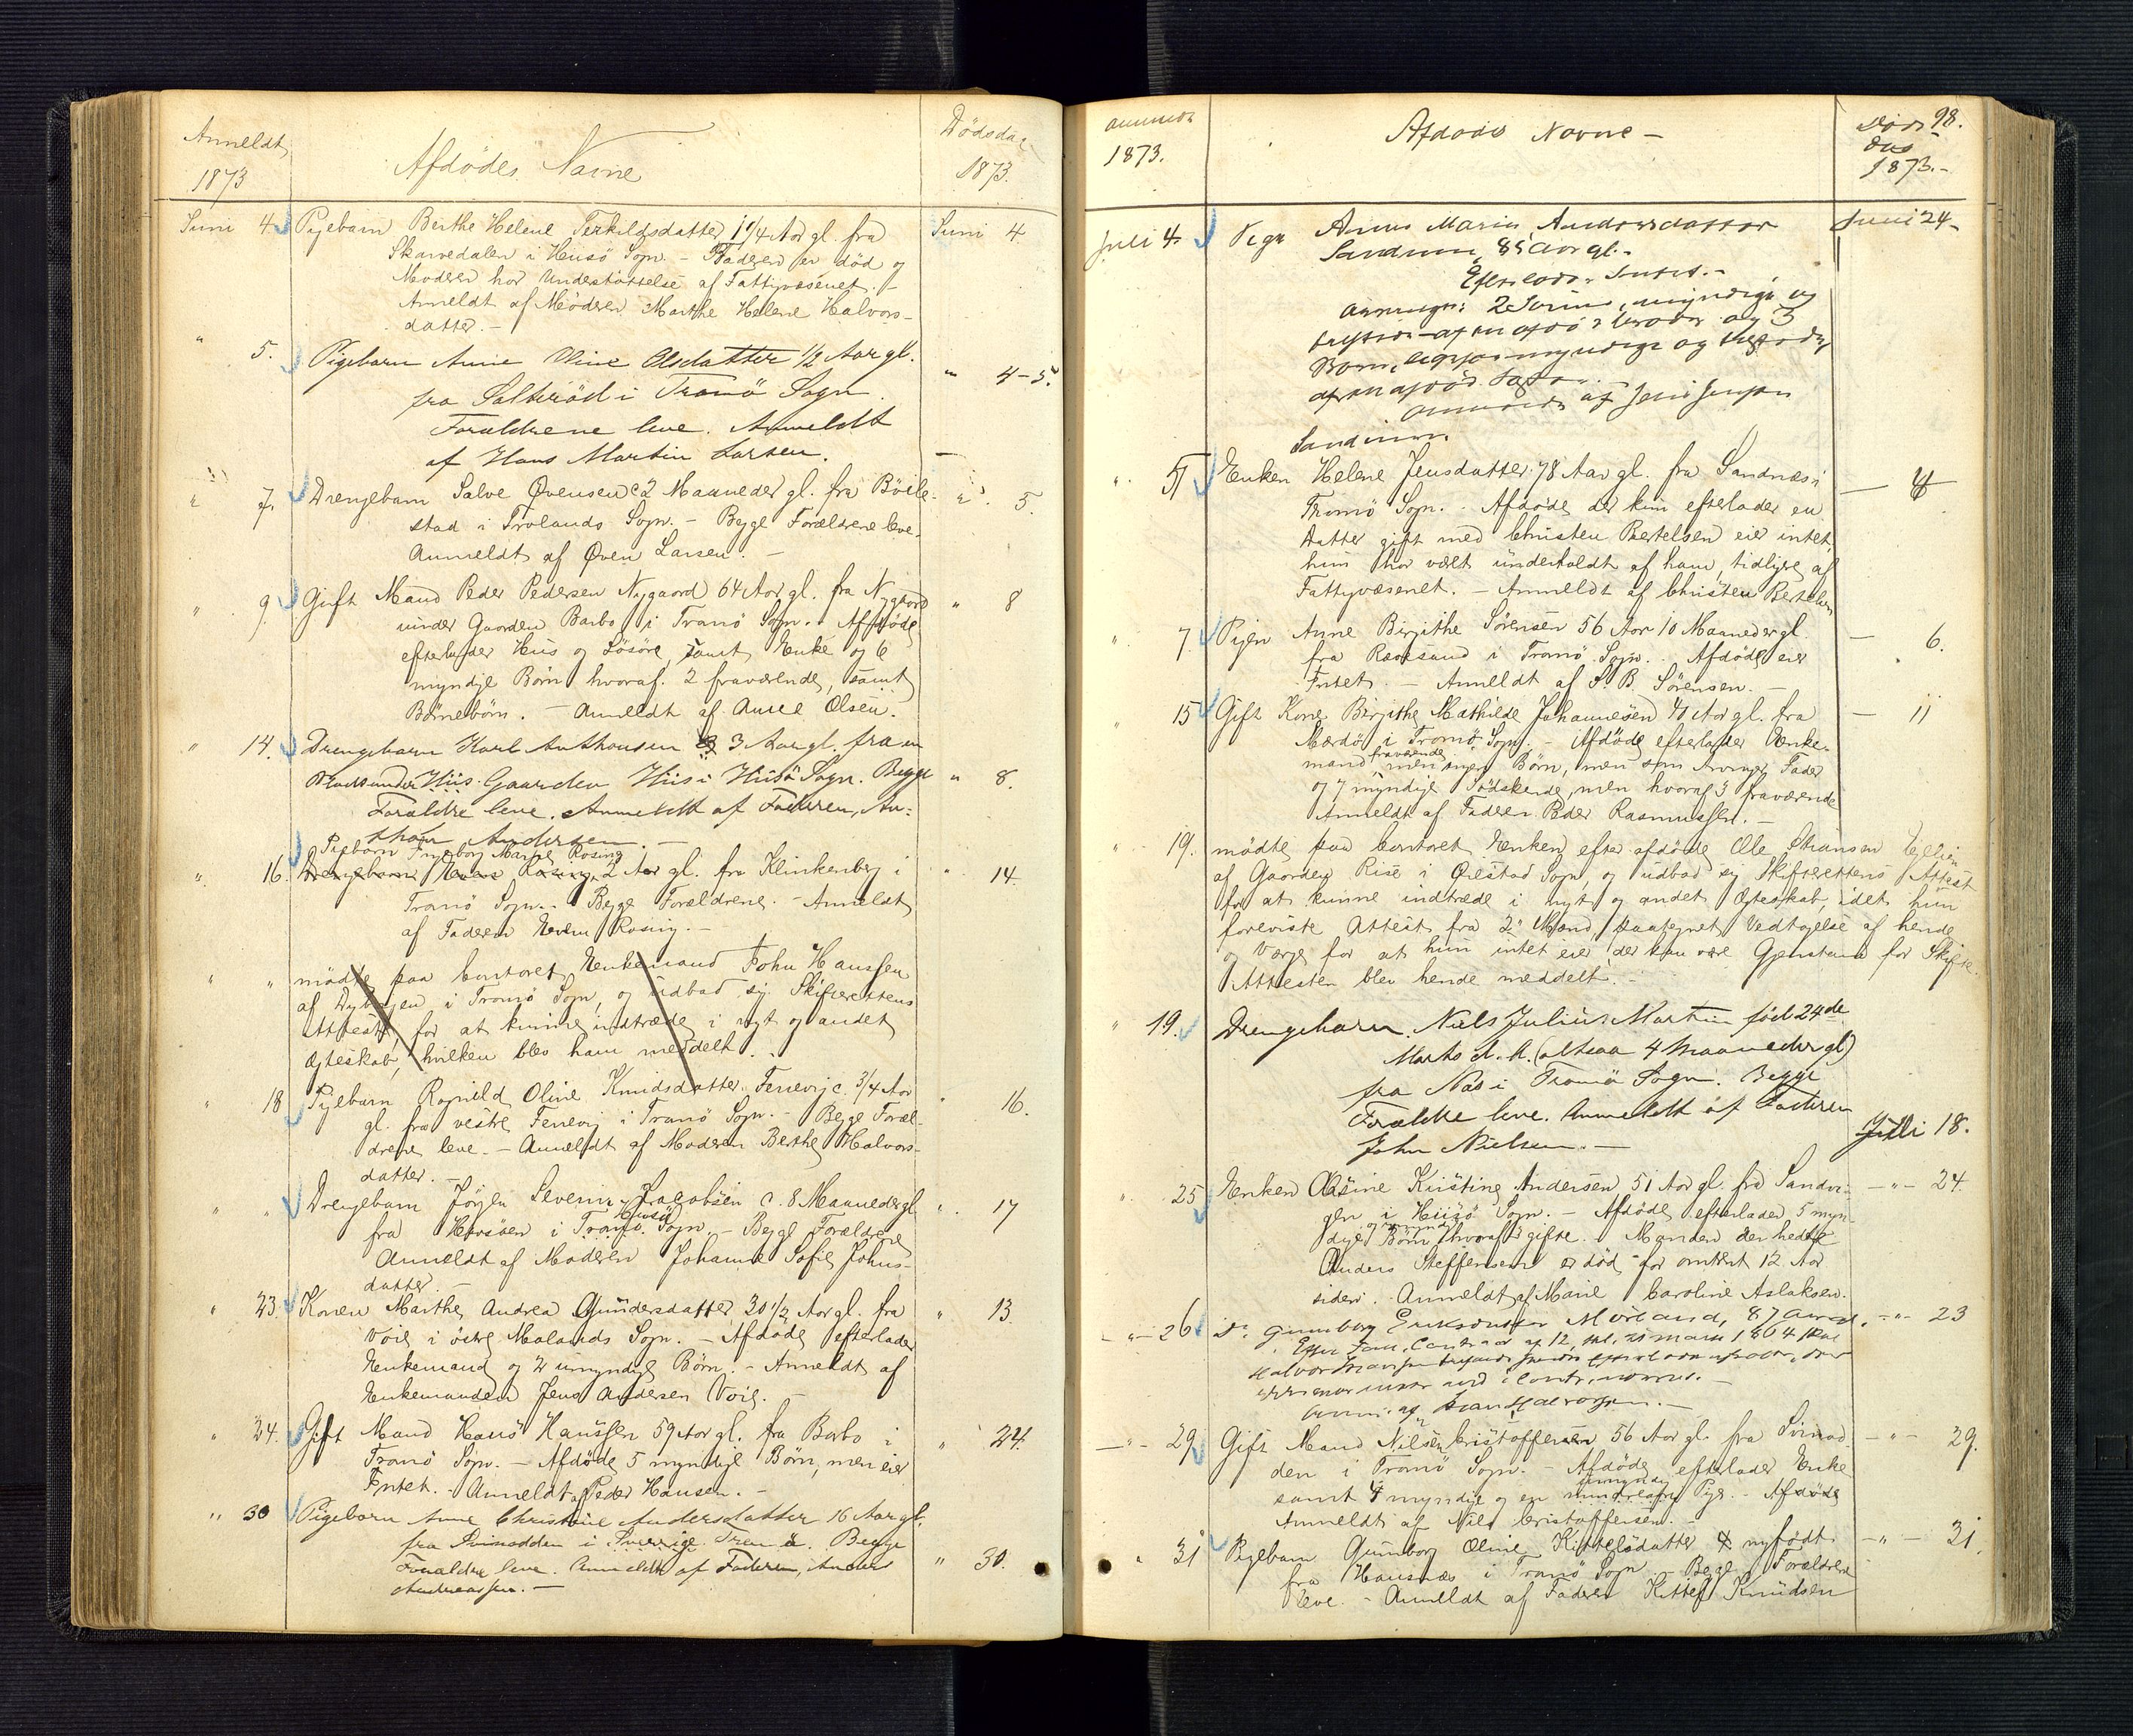 Anmeldt
1873
Afdødes Navne
Dødsdag
1873.
Juni 4. Pigebarn Berthe Helene Terkildsdatter 1 1/4 Aar gl. fra Juni 4
Skarvedalen i Hisø Sogn. - Faderen er død og
Moderen har Understøttelse af Fattigvæsenet. -
Anmeldt af Moderen Marthe Helene Halvors-
datter. -
" 5. Pigebarn Anne Oline Olsdatter 1/2 Aar gl. " 4-5.
fra Salterød i Tromø Sogn.
Forældrene leve. Anmeldt
af Hans Martin Larsen.
" 7. Drengebarn Salve Øvensen c 2 Maaneder gl. fra Bøile- " 5.
stad i Frolands Sogn. - Begge Forældrene leve.
Anmeldt af Øven Larsen. -
" 9. Gift Mand Peder Pedersen Nygaard 64 Aar gl. fra Nygaard " 8
under Gaarden Barbo i Tromø Sogn. Afdøde
efterlader Hus og Løsøre, samt Enke og 6
myndige Børn hvoraf 2 fraværende, samt
Børnebørn. - Anmeldt af Aanel Olsen.
" 14. Drengebarn Karl Anthonsen 3 Aar gl. fra en
Plads under Hiis Gaarden Hiis i Hisø Sogn. Begge " 8.
Forældre leve. Anmeldt af Faderen, An-
thon Andersen. -
Pigebarn Ingeborg Marie Rosing
" 16. Drengebarn Rosing 2 Aar gl. fra Klinkenberg i " 14.
Tromø Sogn. - Begge Forældrene. - Anmeldt
af Faderen Rosing. -
" " mødte paa Contoret Enkemand John Hanssen
af Dybvigen i Tromø Sogn, og udbad sig Skifterettens
Attest, for at kunne indtræde i nyt og andet
Ægteskab, hvilken blev ham meddelt.
" 18 Pigebarn Ragnild Oline Knudsdatter Fenevig c. 3/4 Aar " 16.
gl. fra vestre Fenevig i Tromø Sogn. - Begge Foræl-
drene leve. - Anmeldt af Moderen Berthe Halvors-
datter. -
" " Drengebarn Jørgen Severin Jacobsen c. 8 Maaneder gl. " 17
Hisø
fra Havsøen i Tromø Sogn. - Begge Forældrene
Anmeldt af Moderen Johanne Sofie Johns-
datter. -
" 23. Konen Marthe Andrea Gundersdatter 30 1/2 Aar gl. fra " 13.
Voie i østre Molands Sogn. - Afdøde efterlader
Enkemand og 2 umyndige Børn. - Anmeldt af
Enkemanden Jens Andersen Voie. -
" 24. Gift Mand Hans Hanssen 59 Aar gl. fra Barbo i " 24.
Tromø Sogn. - Afdøde 5 myndige Børn, men eier
Intet. - Anmeldt af Peder Hansen. -
" 30 Pigebarn Anne Christine Andersdatter 16 Aar gl.
fra Svinodden i Tromø. Begge
Forældre leve. Anmeldt af Faderen, Anders " 30.
Andreassen. -
Anmeldt
1873.
Afdødes Navne -
Døds-
dag
1873. -
98.
Juli 4. Pige Anne Maria Andersdatter Juni 24 -
Sandum, 85 Aar gl. -
Efterlader Intet. -
Arvinger: 2 myndige og
af en afdød Broder og 3
Børn, myndige og
af en afdød
Anmeldt af Jens Jensen
Sandum.
" 5 Enken Helene Jensdatter 78 Aar gl. fra Sandnæs i - 4
Tromø Sogn. - Afdøde der kun efterlader en
Datter gift med Christen Bertelsen eier intet,
hun har været underholdt af ham, tidligere af
Fattigvæsenet. - Anmeldt af Christen Bertelsen
" 7. Pigen Anne Birgithe Sørensen 56 Aar 10 Maaneder gl. - 6.
fra Revesand i Tromø Sogn. Afdøde eier
Intet. - Anmeldt af S. B. Sørensen. -
" 15 Gift Kone Birgithe Mathilde Johannesen 41 Aar gl. fra - 11
Mærdø i Tromø Sogn. - Afdøde efterlader Enke-
fraværende
mand men ingen Børn, men som Arvinger Fader
og 7 myndige Sødskende, men hvoraf 3 fraværende
Anmeldt af Faderen Peder Rasmussen. -
" 19. mødte paa Contoret Enken efter afdøde Ole Johansen
af Gaarden Rise i Øiestad Sogn, og udbad sig Skifterettens Attest
for at kunne indtræde i nyt og andet Ægteskab, idet hun
foreviste Attest fra 2 Mænd, paategnet Vedtagelse af hende
og Værge for at hun intet eier der kan være Gjenstand for Skifte.
Attesten blev hende meddelt. -
" 19. Drengebarn Niels Julius Martin fød 24de
Marts d. A. (altsaa 4 Maaneder gl)
fra Næs i Tromø Sogn. Begge
Forældre leve. Anmeldt af Faderen Juli 18.
John Nielsen. -
" 25 Enken Kristine Andersen 51 Aar gl. fra Sandvi- -"- 24
gen i Hisø Sogn. - Afdøde efterlader 5 myn-
dige Børn hvoraf gifte. Manden der hedte
Anders Steffensen er død for omtrent 12 Aar
siden. Anmeldt af Marie Caroline Aslaksen.
-"- 26. Do Gunborg Eriksdatter Mørland, 87 Aar gl. -"- 23
-"- 29 Gift Mand Nils Cristoffersen 56 Aar gl. fra Svinod- -"- 29.
den i Tromø Sogn. - Afdøde efterlader Enke
umyndig
samt 4 myndige og en Pige. - Afdøde
Anmeldt af Nils Cristoffersen. -
" 31 Pigebarn Gunborg Oline Kittelsdatter nyfødt -"- 31.
fra Hausnæs i Tromø Sogn - Begge Forældrene
leve. - Anmeldt af Faderen Kittel Knudsen